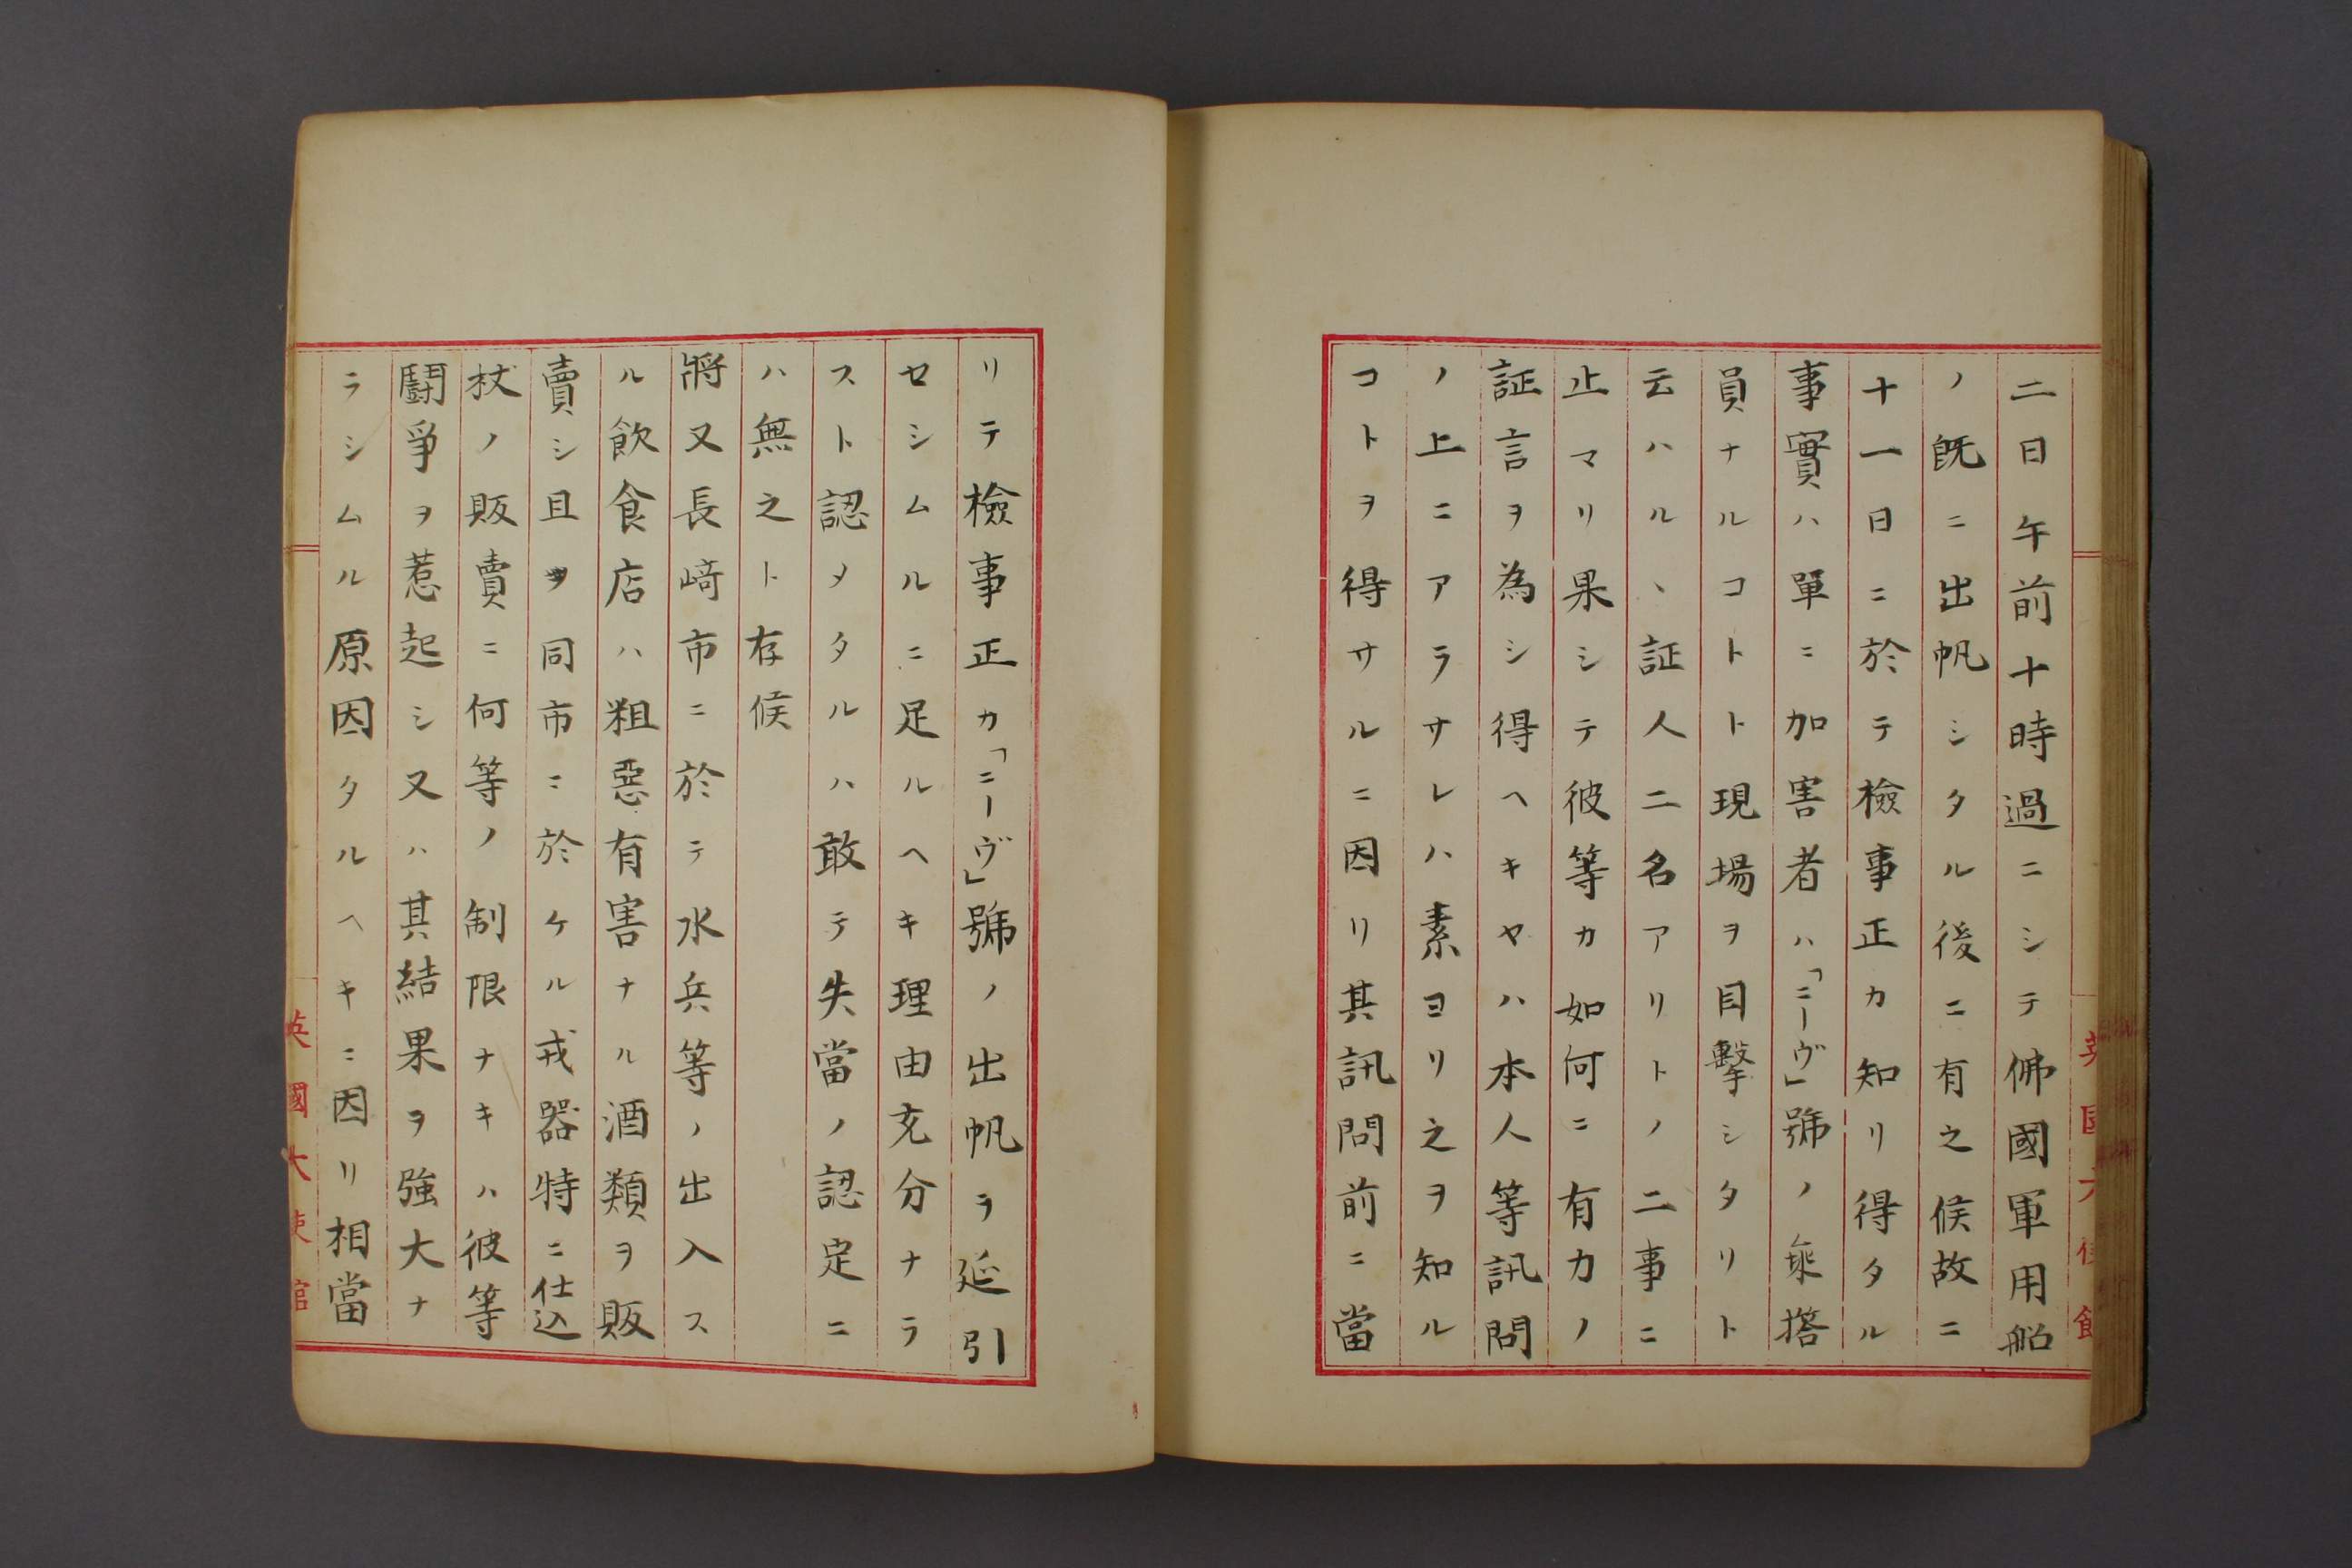 二日午前十時過ニシテ佛國軍用船
ノ既ニ出帆シタル後ニ有之候故ニ
十一日ニ於テ檢事正カ知リ得タル
事實ハ單ニ加害者ハ「ニーヴ」號ノ乗撘
員ナルコトト現場ヲ目擊シタリト
云ハル、証人二名アリトノ二事ニ
止マリ果シテ彼等カ如何ニ有力ノ
証言ヲ為シ得ヘキヤハ本人等訊問
ノ上ニアラサレハ素ヨリ之ヲ知ル
コトヲ得サルニ因リ其訊問前ニ當
リテ檢事正カ「ニーヴ」號ノ出帆ヲ延引
セシムルニ足ルヘキ理由充分ナラ
スト認メタルハ敢テ失當ノ認定ニ
ハ無之ト存候
將又長崎市ニ於テ水兵等ノ出入ス
ル飲食店ハ粗惡有害ナル酒類ヲ販
賣シ且ヲ同市ニ於ケル戎器特ニ仕込
杖ノ販賣ニ何等ノ制限ナキハ彼等
鬪爭ヲ惹起シ又ハ其結果ヲ強大ナ
ラシムル原因タルヘキニ因リ相當
英國大使館